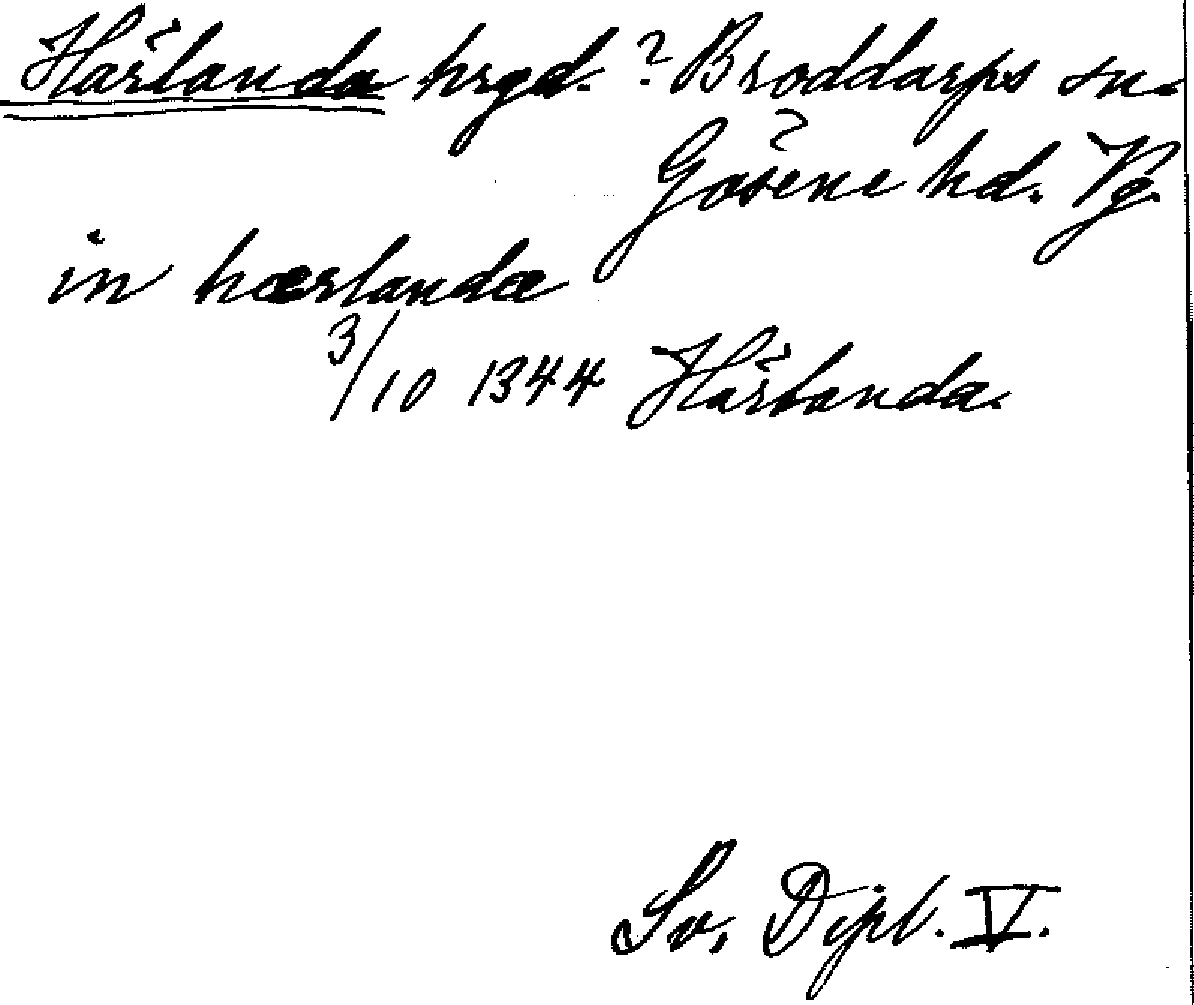 Härlanda hrgd. ? Broddarps sn.
Gäsene hd. Vg.
in hærlandæ
3/10 1344 Härlanda.
Sv. Dipl. V.